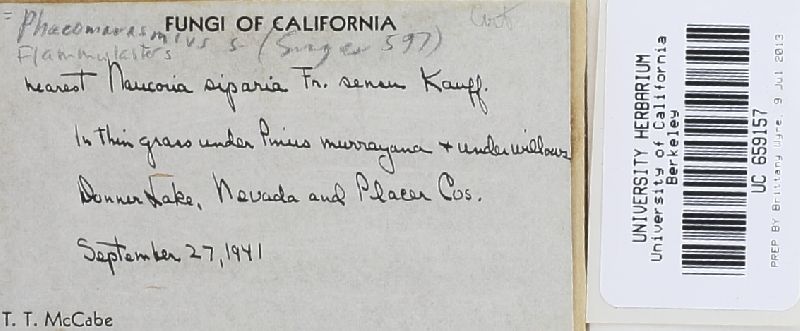 = Phaeomarasmius s (Singer 597)
Cort
FUNGI OF CALIFORNIA
Flammulasters
nearest Naucoria siparia Fr. sensu Kauff.
In thin grass under Pinus murrayana + under willows
Donner Lake, Nevada and Placer Cos.
September 27, 1941
T. T. McCabe
UNIVERSITY HERBARIUM
University of California
Berkeley
UC 659157
PREP BY Brittany Ugre, 9 Jul 2013